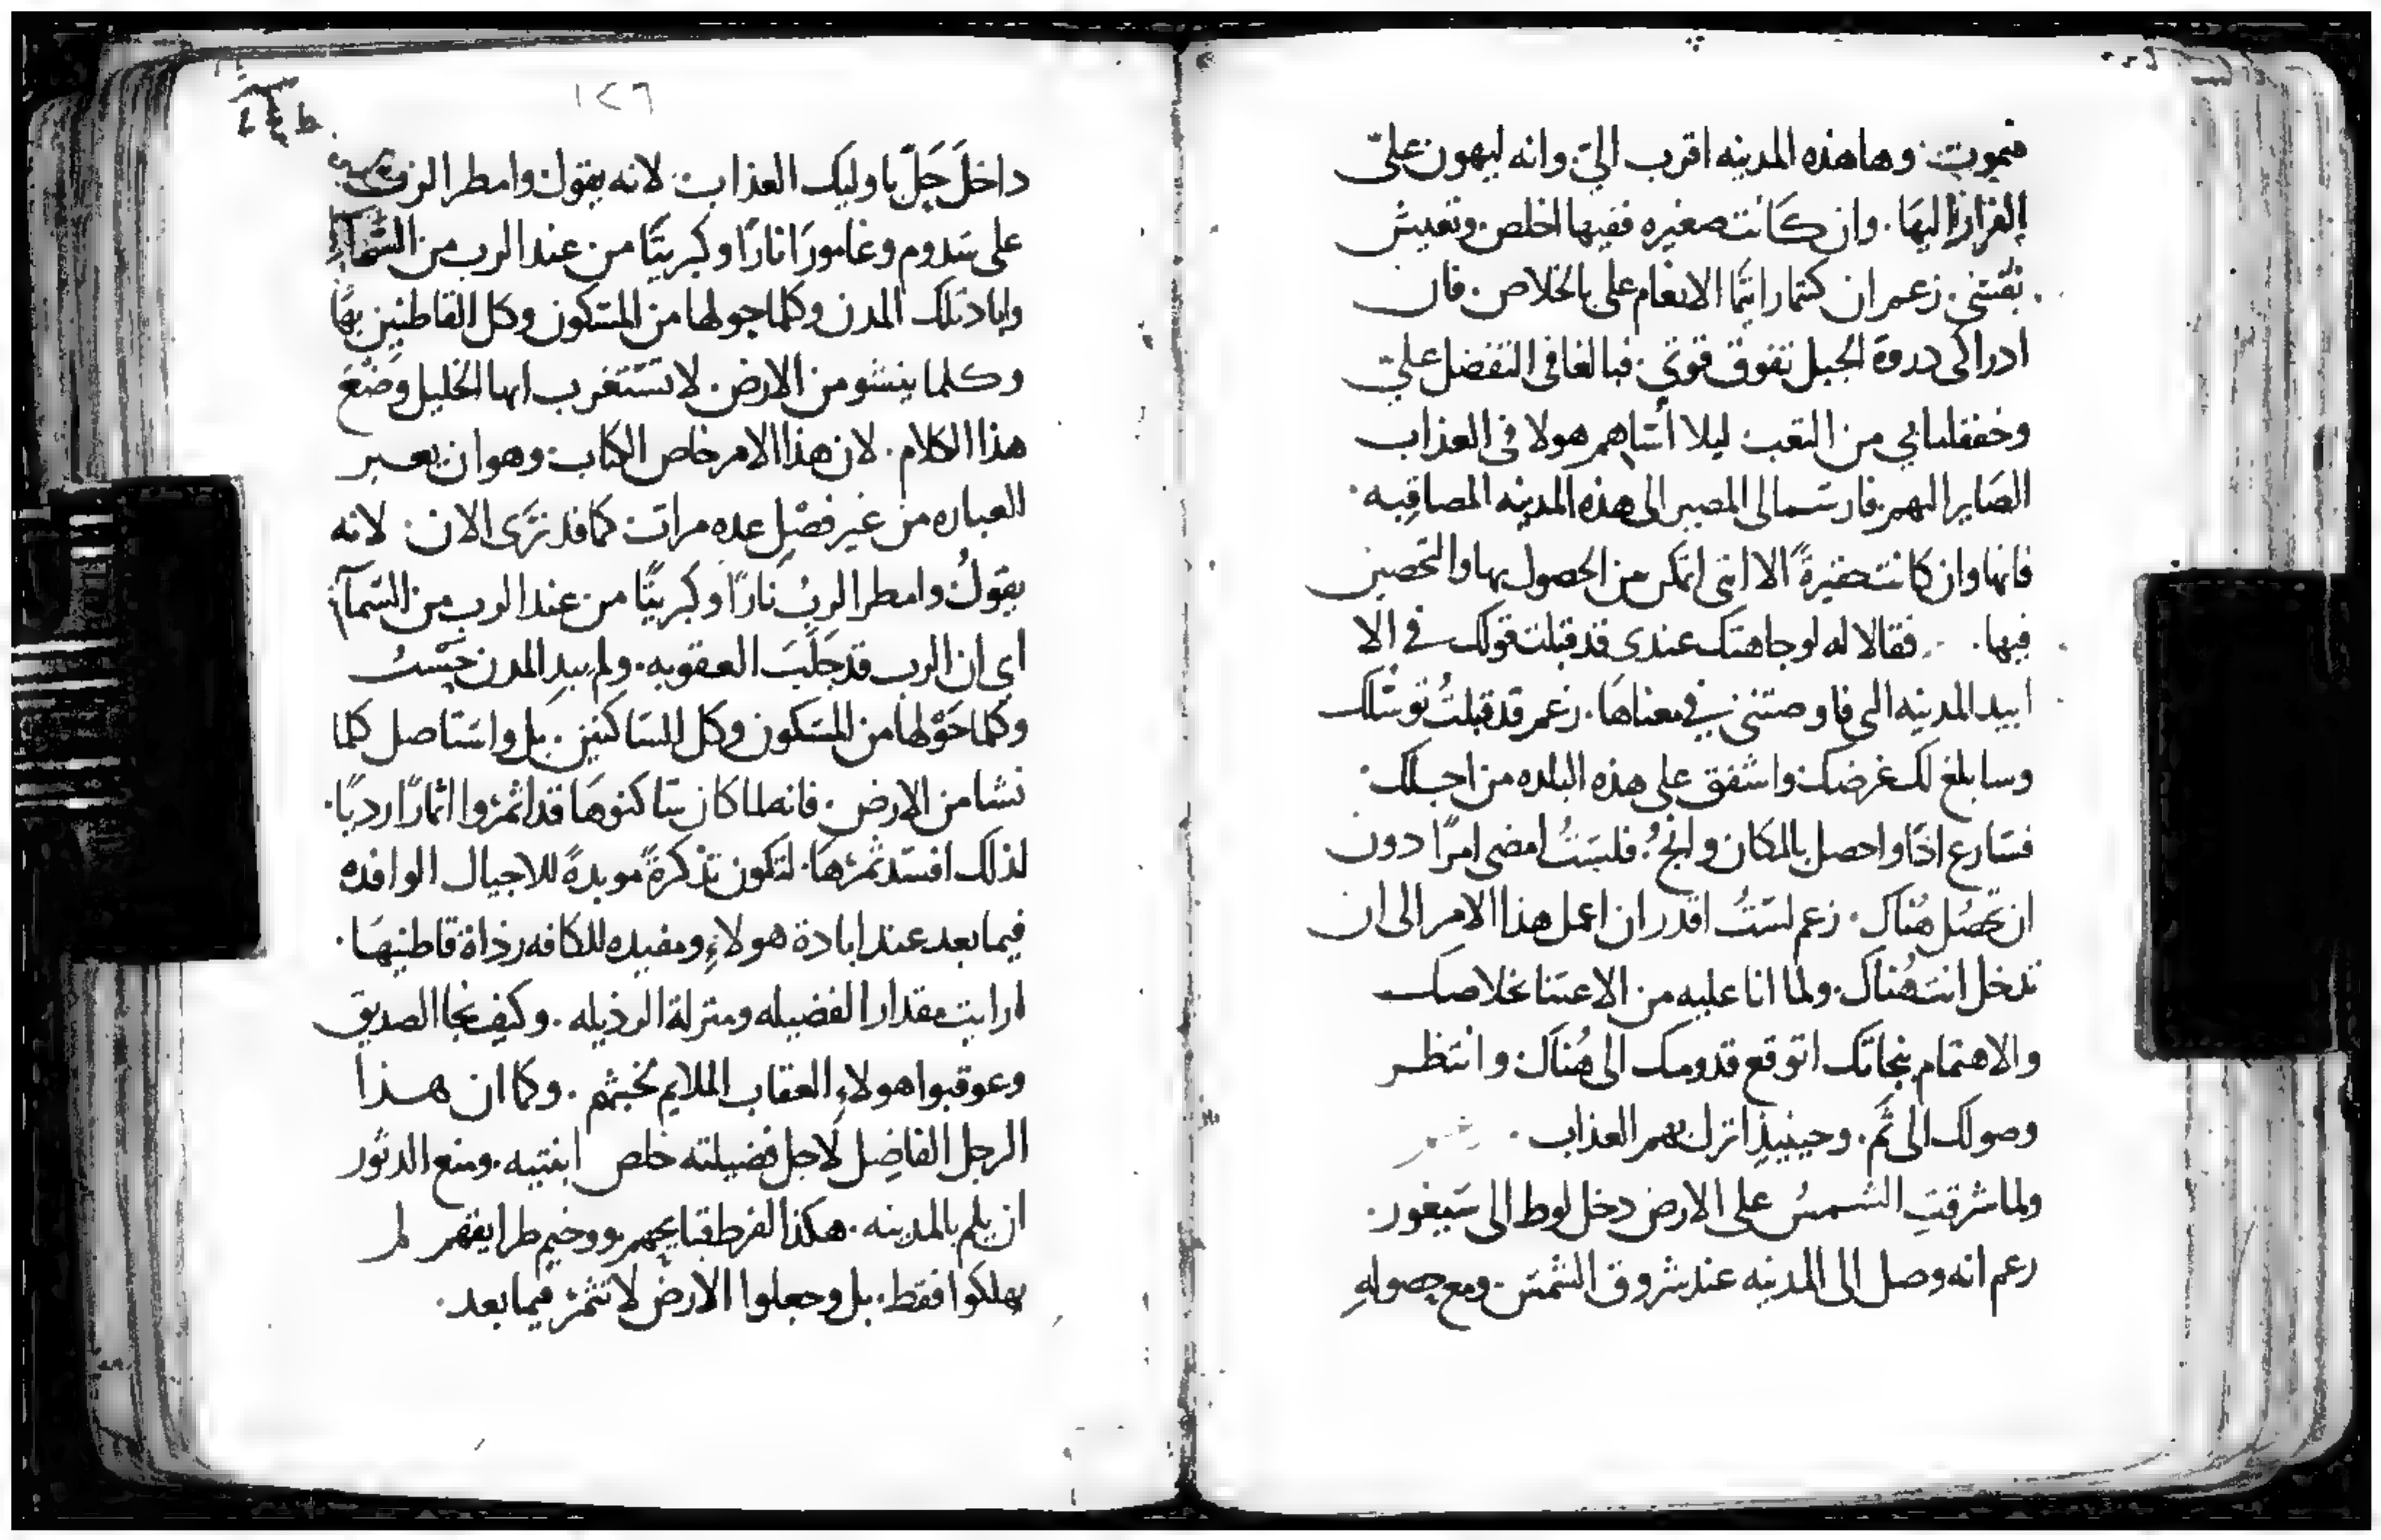 فيموت. وها هذه المدينه اقرب اليّ. وانه ليهون عليّ
الفرار اليها. وان كانت صغيره ففيها اخلص. وتعيش
نفسي. زعم ان كنتما رايتما الانعام على بالخلاص. فان
ادراكى دروة الجبل تفوق قوتي. فبالغا فى التفضل عليّ
وخففا عني من التعب. ليلا اساهم هولا فى العذاب
الصاير اليهم. فارسما لى المصير الى هذه المدينه المصاقبه.
فانها وان كانت حقيرةً الا انني اتمكن من الحصول بها والتحصين
فيها. فقالا له لوجاهتك عندى قد قبلت قولك في الا
ابيد المدينه التى فاوضتنى في معناها. زعم قد قبلتُ توسّلك
وسابلغ لك غرضك واشفق على هذه البلده من اجلك.
فسارع اذًا واحصل بالمكان وانجُ. فلستُ امضى امرًا دون
ان تحصُل هُناك. زعم لستُ اقدر ان اعمل هذا الامر الى ان
تدخل انت هُناك. ولما انا عليه من الاعتنا بخلاصك
والاهتمام بنجاتك اتوقع قدومك الى هُناك وانتظر
وصولك الى ثَم. وحينيذٍ انزل بهم العذاب.
ولما شرقتِ الشمسُ على الارض دخل لوط الى سَيغور.
زعم انه وصل الى المدينه عند شروق الشمس. ومع حصولهِ
١٢٦
داخلَ حَلّ باوليك العذاب. لانه يقول وامطر الرب
على سَدوم وغامورَا نارًا وكبريتًا من عند الرب من السماءِ
واباد تلك المدن وكلما حولها من المسكون وكل القاطنين بها
وكلما ينشو من الارض. لا تستغرب ايها الخليل وضع
هذا الكلام. لان هذا الامر خاص الكتاب. وهو ان يعبر
العباره من غير فصْلٍ عده مرات كما قد ترَى الان. لانه
يقولُ وامطر الربُ نارًا وكبريتًا من عند الرب من السّمآءِ
اي ان الرب قد جَلَبَ العقوبه. ولم يبدِ المدن حسْبُ
وكلما حَوْلها من المسكون وكل الساكنين. بل واستاصل كلما
نشا من الارض. فانه لما كان ساكنوها قد اثمرُوا اثمارًا رديًا.
لذلك افسَد ثمرُها. لتكون تذكرةً موبدةً للاجيال الوافده
فيما بعد عند ابادة هولاءِ. ومفيده للكافه رذاة قاطنيها.
ارايت مقدار الفضيله ومنزلة الرذيله. وكيف نجا الصديق
وعوقبوا هولاءِ العقاب الملايم لخبثهم. وكما ان هذا
الرجل الفاضِل لاجل فضيلته خلص ابنتيه. ومنع الدثور
ان يلم بالمدينه. هكذا لفرط قبايحهم ووخيم طرايقهم لم
يهلكوا فقط. بل وجعلوا الارض لا تثمرُ فيما بعد.